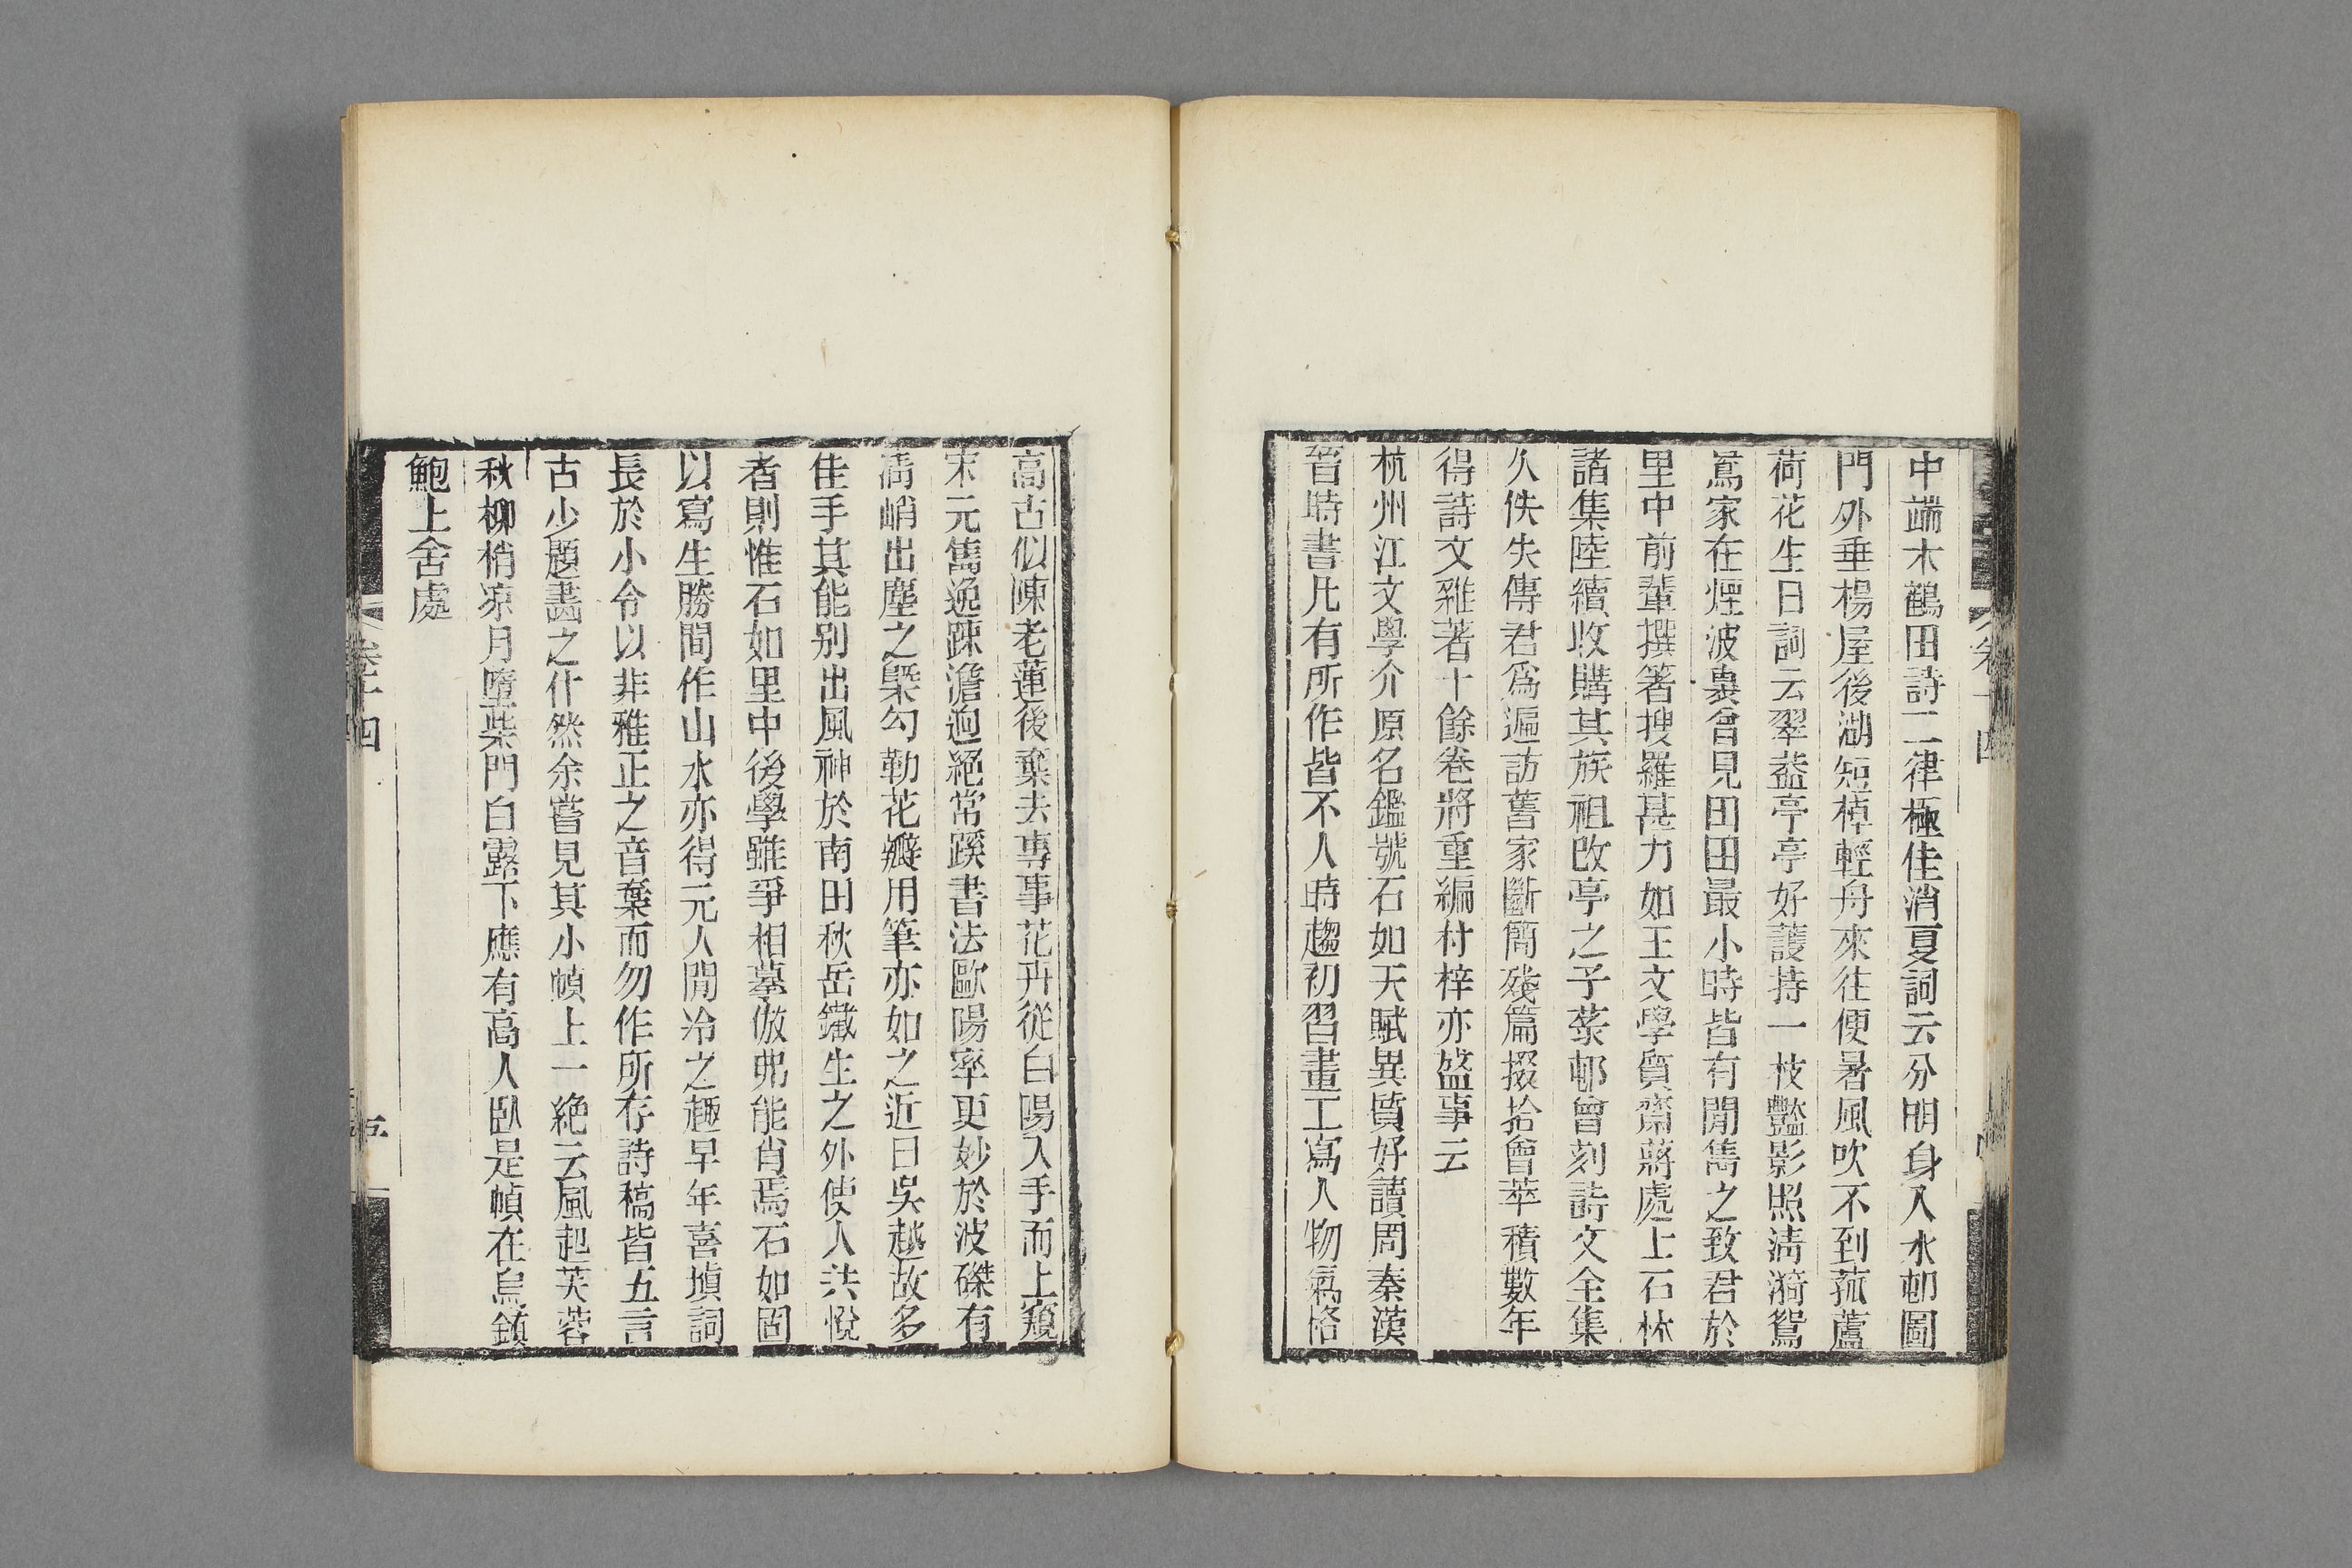 中端木鶴田詩二律極佳消夏詞云分明身入水邨圖
門外垂楊屋後湖短棹輕舟來往便暑風吹不到菰蘆
荷花生日詞云翠葢亭亭好護持一枝豔影照清漪鴛
鴦家在煙波裏曾見田田最小時皆有閒雋之致君於
里中前輩撰箸搜羅甚力如王文學質齋蔣處士石林
諸集陸續收購其族祖改亭之子菉邨曾刻詩文全集
久佚失傳君爲遍訪舊家斷簡殘篇掇拾會萃積數年
得詩文雜著十餘卷將重編付梓亦盛事云
杭州江文學介原名鑑號石如天賦異質好讀周秦漢
晉時書凡有所作皆不入時趨初習畫工寫人物氣格
卷十四
高古似陳老蓮後棄去專事花卉從白陽入手而上窺
宋元雋逸踈澹迥絕常蹊書法歐陽率更妙於波磔有
清峭出塵之槩勾勒花瓣用筆亦如之近日吳越故多
佳手其能别出風神於南田秋岳鐵生之外使人共悅
者則惟石如里中後學雖爭相摹倣弗能肖焉石如固
以寫生勝間作山水亦得元人閒冷之趣早年喜塡詞
長於小令以非雅正之音棄而勿作所存詩稿皆五言
古少題畵之什然余嘗見其小幀上一絕云風起芙蓉
秋柳梢凉月墮柴門白露下應有高人臥是幀在烏鎮
鮑上舍處
卷十四
五